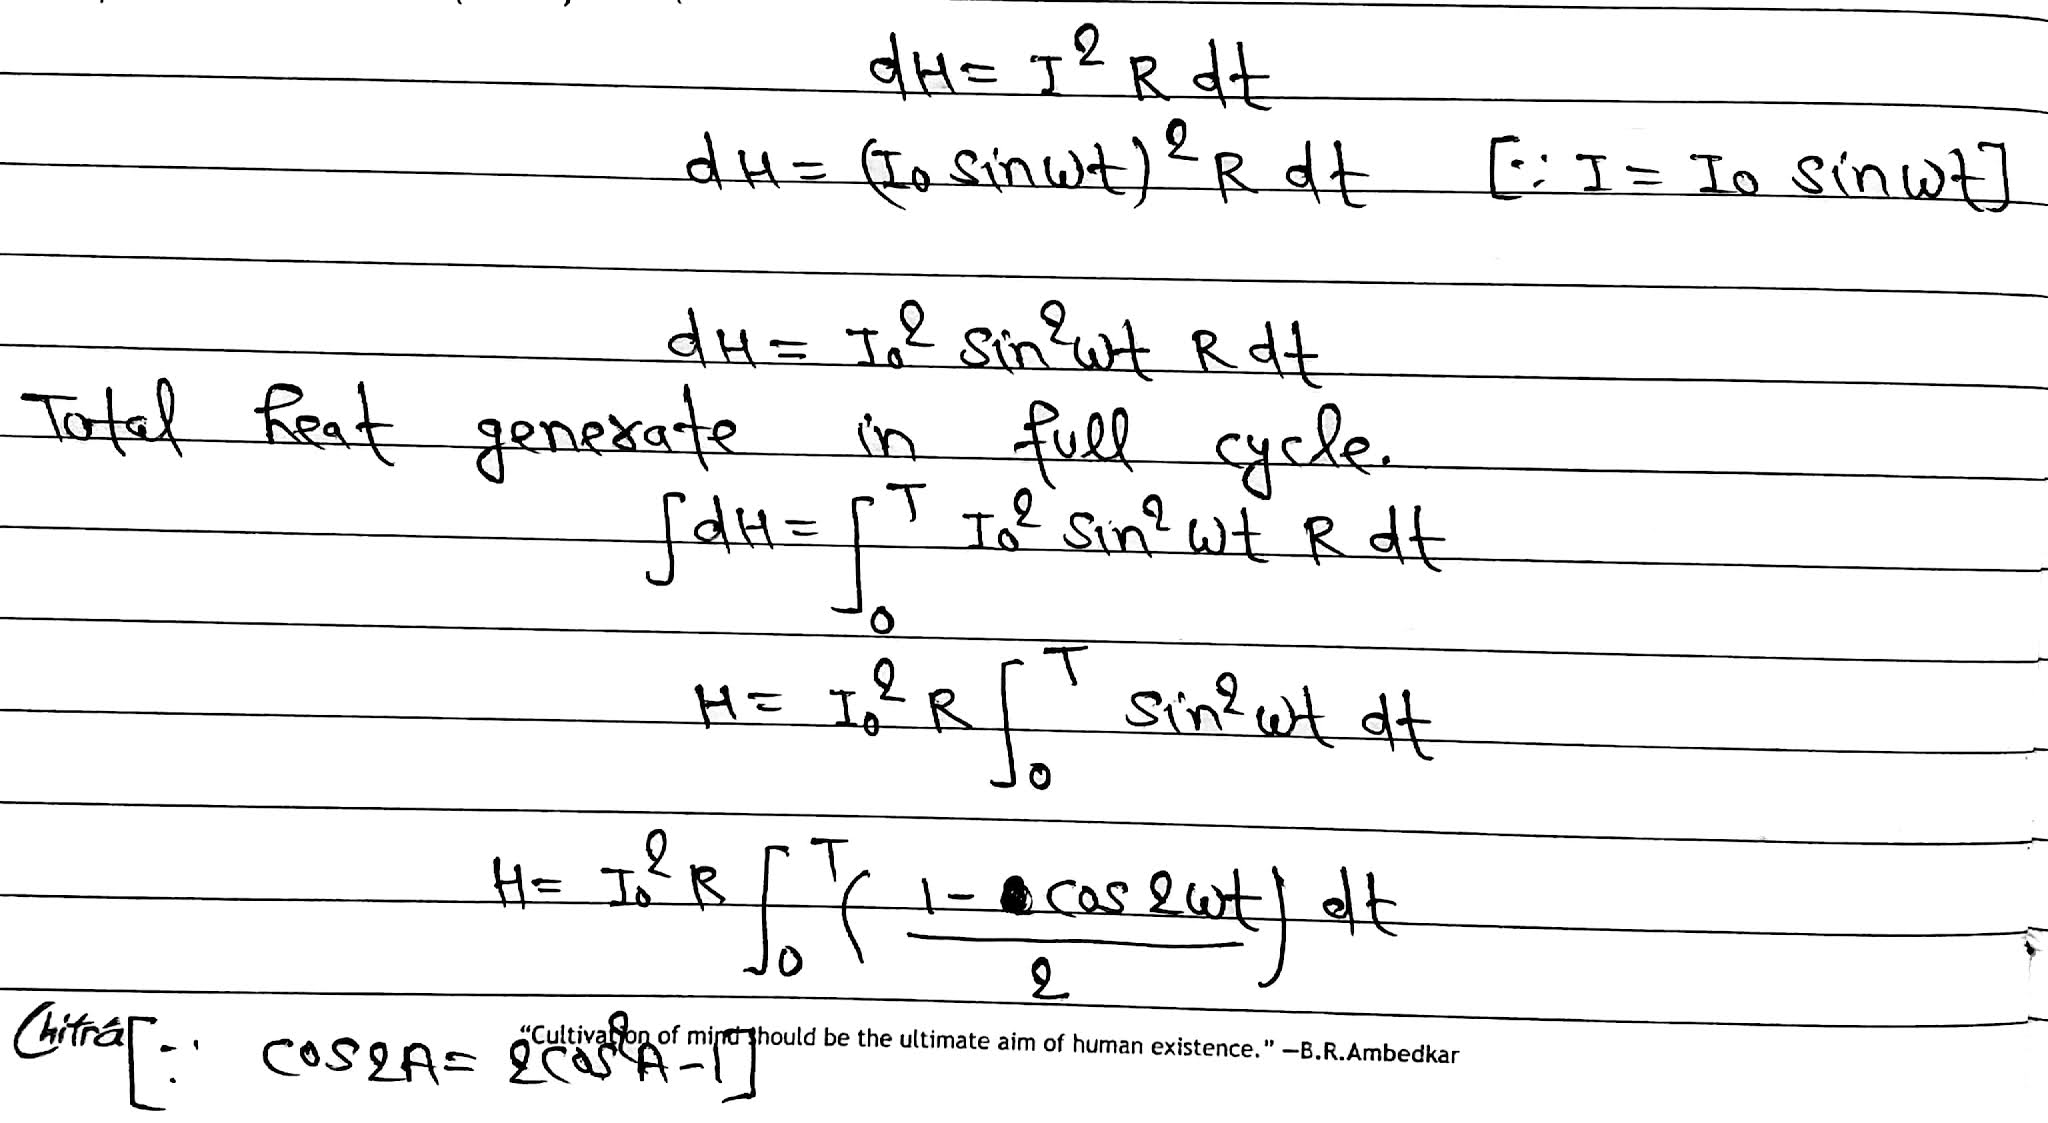 dH = I² R dt
dH = (I₀ sinωt)² R dt [∵ I = I₀ sinωt]
dH = I₀² sin²ωt R dt
Total heat generate in full cycle.
∫dH = ∫₀ᵀ I₀² sin²ωt R dt
H = I₀² R ∫₀ᵀ sin²ωt dt
H = I₀² R ∫₀ᵀ (1 - cos 2ωt / 2) dt
Chitra "Cultivation of mind should be the ultimate aim of human existence." —B.R.Ambedkar
[∵ cos2A = 2cos²A - 1]